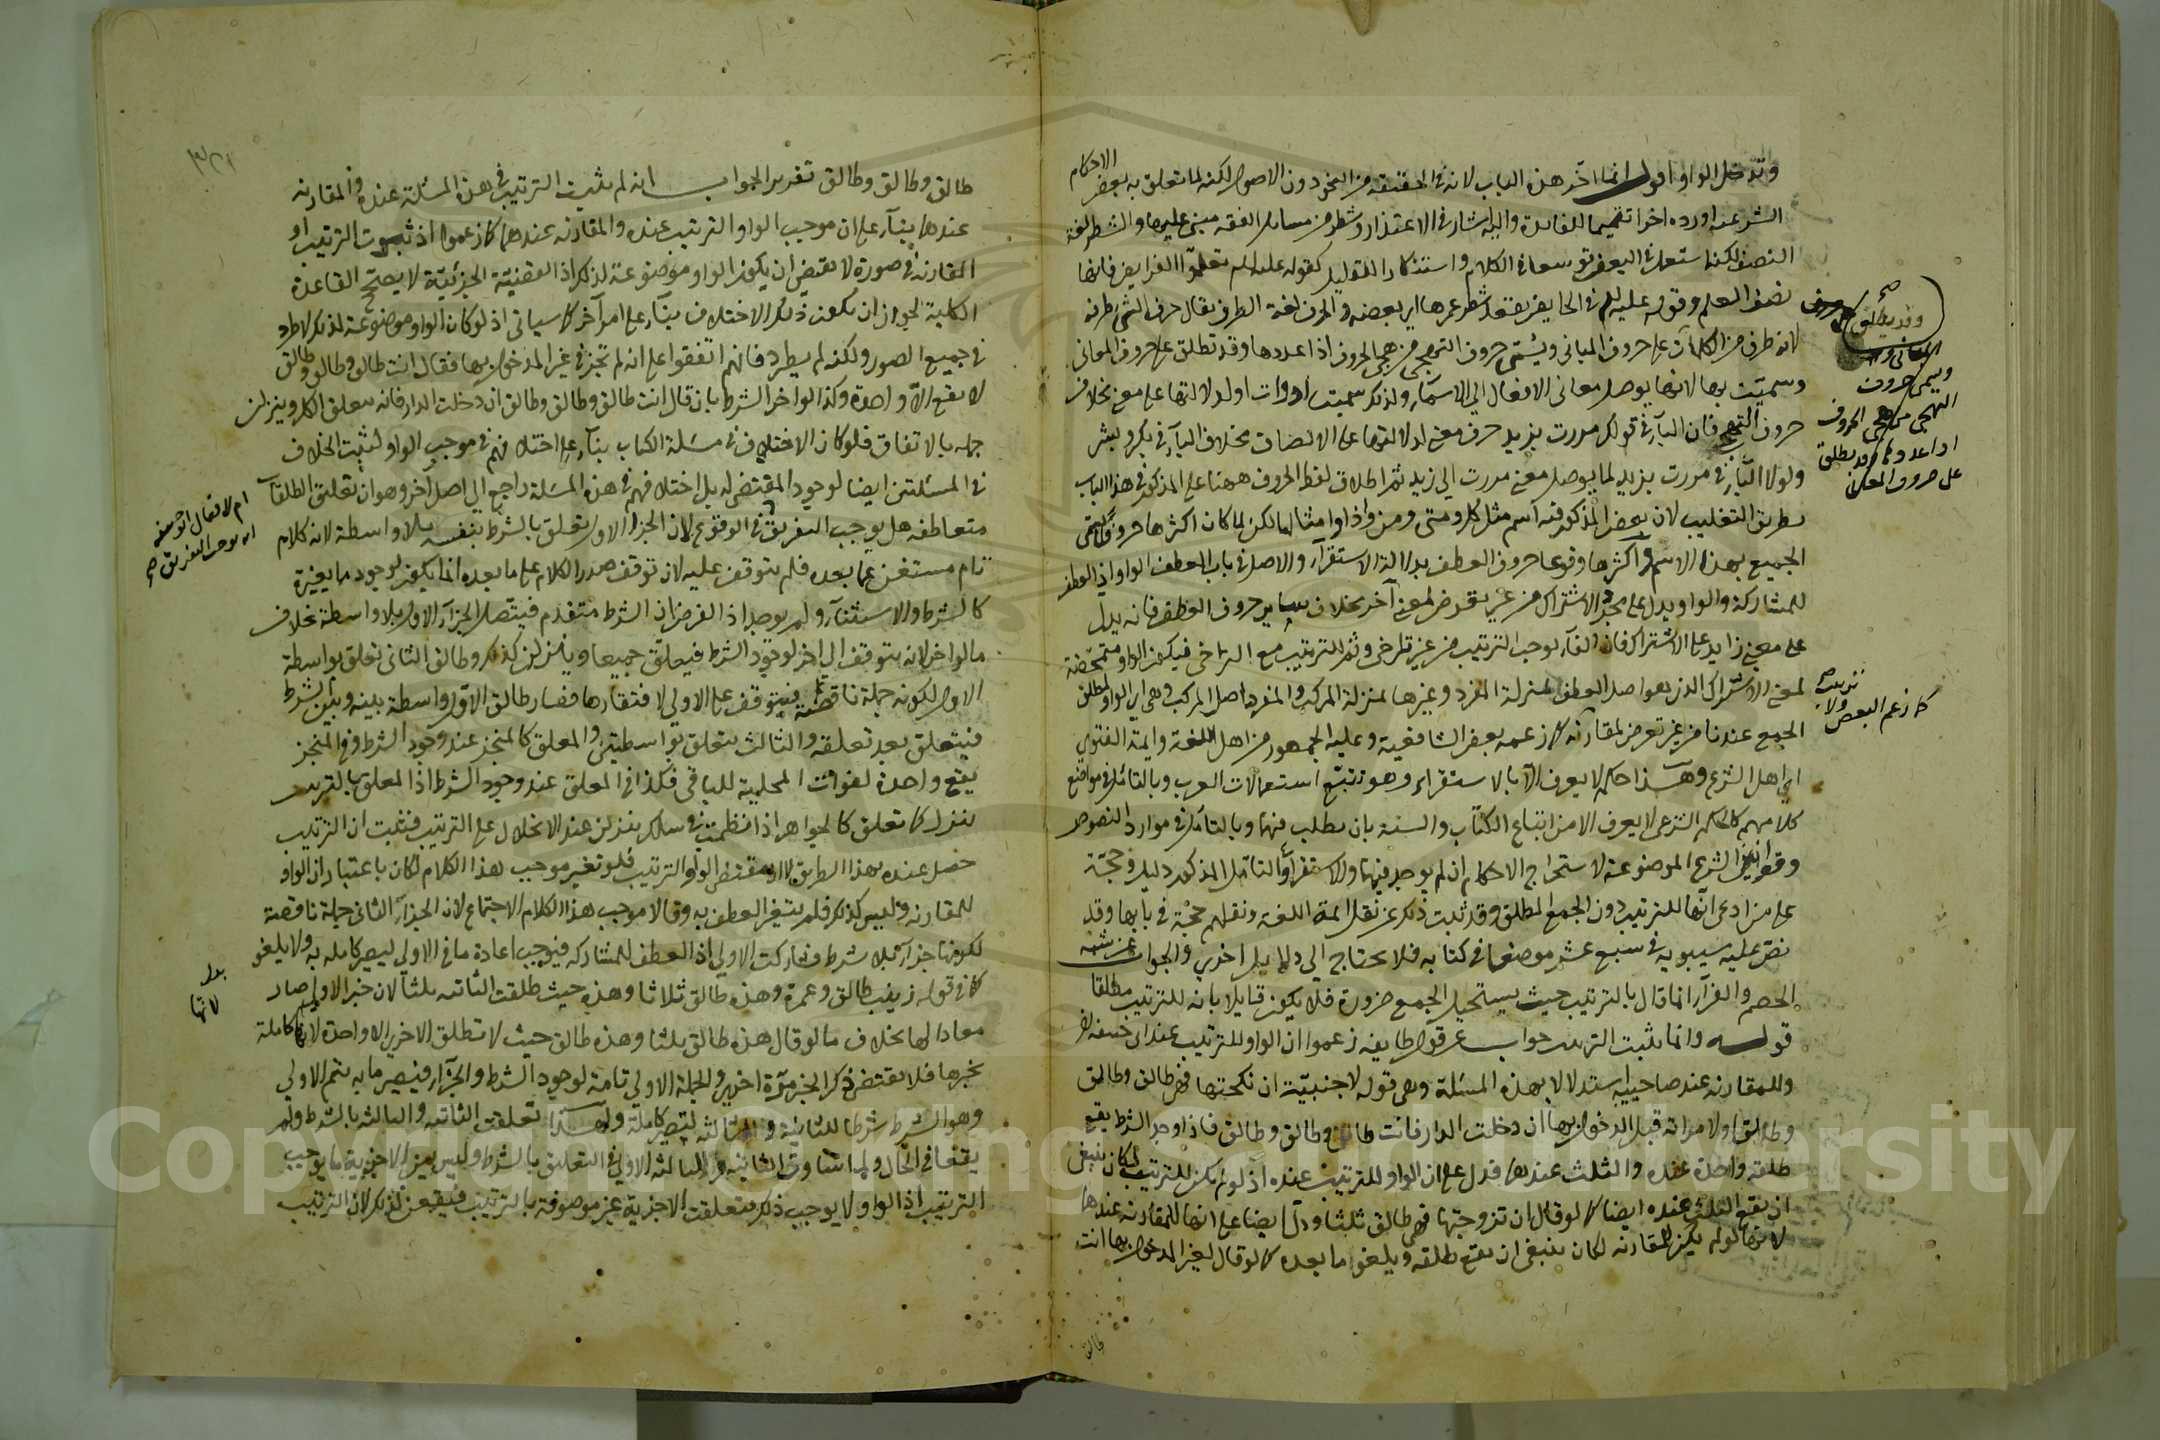 وتدخل الواو اقول انما اخر هذه الباب لانه في الحقيقة من النحو دون الاصول لكنه لما تعلق به بعض الاحكام
الشرعية اورده اخرا تتميما للفائدة واليه اشار في الاعتذار وشطر من مسائل الفقه مبني عليها والشطر لغة
النصف لكنه استعمل في البعض توسعا في الكلام واستكثارا للقليل كقوله عليه السلم تعلموا الفرايض فانها
نصف العلم وقوله عليه السلم في الحايض تقعد شطر عمرها اي بعضه والحرف لغة الطرف يقال حرف الشئ طرفه
لانه طرف من الكلمات على حروف المباني ويسمى حروف التهجي من هجي الحروف اذا عددها وقد تطلق على حروف المعاني
وسميت بها لانها يوصل معاني الافعال الى الاسماء ولذلك سميت ادوات اولدلالتها على معنى بخلاف
حروف التهجي فان الباء في قولك مررت بزيد حرف معنى لدلالتها على الالصاق بخلاف الباء في بكر وبشر
ولولا الباء في مررت بزيد لما يوصل معنى مررت الى زيد ثم اطلاق لفظ الحروف ههنا على المذكور في هذا الباب
بطريق التغليب لان بعض المذكور فيه اسم مثل كل ومتى ومن واذا وامثالها لكن لما كان اكثرها حروفا سمى
الجميع بهذا الاسم واكثرها وقوعا حروف العطف بدلالة الاستقراء والاصل في باب العطف الواو اذ العطف
للمشاركة والواو يدل على مجرد الاشتراك من غير تعرض لمعنى آخر بخلاف ساير حروف العطف فانه يدل
على معنى زايد على الاشتراك فان الفاء يوجب الترتيب من غير تراخ وثم للترتيب مع التراخي فيكون الواو متمحضة
لمعنى الاشتراك الذي هو اصل العطف بمنزلة المفرد وغيرها بمنزلة المركب والمفرد اصل المركب وهي اي الواو لمطلق
الجمع عندنا من غير تعرض لمقارنة كما زعمه بعض الشافعية وعليه الجمهور من اهل اللغة وايمة الفتوى
اي اهل الشرع وهذا حكم لا يعرف الا بالاستقراء وهو تتبع استعمالات العرب وبالتامل في مواضع
كلامهم كالحكم الشرعي لا يعرف الا من اتباع الكتاب والسنة بان يطلب فيهما وبالتامل في موارد النصوص
وقوانين الشرع الموضوعة لاستخراج الاحكام ان لم يوجد فيهما والاستقراء والتامل المذكور دليل وحجة
على من ادعى انها للترتيب دون الجمع المطلق وقد ثبت ذلك عن نقل ايمة اللغة ونقلهم حجة في بابها وقد
نص عليه سيبويه في سبع عشر موضعا في كتابه فلا يحتاج الى دلايل اخرى والجواب عن شبهة
الخصم والفراء انما قال بالترتيب حيث يستحيل الجمع ضرورة فلا يكون قايلا بانه للترتيب مطلقا
قوله وانما يثبت الترتيب جواب عن قول طايفة زعموا ان الواو للترتيب عند ابي حنيفة
وللمقارنة عند صاحبيه استدلالا بهذه المسئلة وهي قوله لاجنبية ان نكحتها فهي طالق وطالق
وطالق او لامراته قبل الدخول بها ان دخلت الدار فانت طالق وطالق وطالق فاذا وجد الشرط يقع
طلقة واحدة عنده والثلث عندهما فدل على ان الواو للترتيب عنده اذ لو لم يكن للترتيب لكان ينبغي
ان يقع الثلث عنده ايضا كما لو قال ان تزوجتها فهي طالق ثلثا ودل ايضا على انها للمقارنة عندهما
لانها لو لم يكن للمقارنة لكان ينبغي ان تقع طلقة ويلغو ما بعده كما لو قال لغير المدخول بها انت
طالق
وقد يطلق على حروف
المعاني
ويسمى حروف
التهجي من هجي الحروف
اذا عددها وقد يطلق
على حروف المعاني
ترتيب ولا
كما زعم البعض
طالق وطالق وطالق تقرير الجواب انه لم يثبت الترتيب في هذه المسئلة عنده والمقارنة
عندهما بناء على ان موجب الواو الترتيب عنده والمقارنة عندهما كما زعموا اذ ثبوت الترتيب او
المقارنة في صورة لا يقتضي ان يكون الواو موضوعة لذلك اذ القضية الجزئية لا يصحح القاعدة
الكلية لجواز ان يكون ذلك الاختلاف بناء على امر آخر كما سياتي اذ لو كان الواو موضوعة لذلك لاطرد
في جميع الصور ولكنه لم يطرد فانهم اتفقوا على انه لو نجز في غير المدخول بها فقال انت طالق وطالق وطالق
لا يقع الا واحدة وكذا لو اخر الشرط بان قال انت طالق وطالق وطالق ان دخلت الدار فانه يتعلق الكل وينزلن
جملة بالاتفاق فلو كان الاختلاف في مسئلة الكتاب بناء على اختلافهم في موجب الواو لثبت الخلاف
في المسئلتين ايضا لوجود المقتضي له بل اختلافهم في هذه المسئلة راجع الى اصل آخر وهو ان تعليق الطلقات
متعاطفة هل يوجب التفريق في الوقوع لان الجزاء الاول يتعلق بالشرط بنفسه بلا واسطة لانه كلام
تام مستغن عما بعده فلم يتوقف عليه لان توقف صدر الكلام على ما بعده انما يكون لوجود ما يغيره
كالشرط والاستثناء ولم يوجد اذ الفرض ان الشرط متقدم فيتصل الجزاء الاول بلا واسطة بخلاف
ما لو اخر لانه يتوقف الى اخر لوجود الشرط فيتعلق جميعا وينزلن كذلك وطالق الثاني تعلق بواسطة
الاول لكونه جملة ناقصة فيتوقف على الاولى لافتقارها فصار طالق الاول واسطة بينه وبين الشرط
فيتعلق بعد تعلقه والثالث يتعلق بواسطتين والمعلق كالمنجز عند وجود الشرط وفي المنجز
يقع واحدة لفوات المحلية للباقي فكذا في المعلق عند وجود الشرط اذا المعلق بالترتيب
ينزل كما تعلق كالجواهر اذا نظمت في سلك ينزلن عند الانحلال على الترتيب فثبت ان الترتيب
حصل عنده بهذا الطريق لا بمقتضى الواو الترتيب فلو تغير موجب هذا الكلام لكان باعتبار ان الواو
للمقارنة وليس كذلك فلم يتغير العطف به وقالا موجب هذا الكلام الاجتماع لان الجزاء الثاني جملة ناقصة
لكونها جزاء بلا شرط وشاركت الاولى اذ العطف للمشاركة فيوجب اعادة ما في الاولى ليصير كاملة به ولا يلغو
كما في قوله زينب طالق وعمرة وهذه طالق ثلاثا وهذه حيث طلقت الثانية ثلثا لان خبر الاولى صار
معادا لها بخلاف ما لو قال هذه طالق ثلثا وهذه طالق حيث لا تطلق الاخرى الا واحدة لانها كاملة
بخبرها فلا يقتضي ذكر الخبر مرة اخرى والجملة الاولى تامة لوجود الشرط والجزاء فيصير ما به يتم الاولى
وهو الشرط شرطا للثانية والثالثة ليصير كاملة ولهذا تعلقت الثانية والثالثة بالشرط ولم
يقعا في الحال ولما تساوت الثانية والثالثة الاولى في التعليق بالشرط وليس بين الاجزية ما يوجب
الترتيب اذ الواو لا يوجب ذلك فتعلقت الاجزية غير موصوفة بالترتيب فيقعن كذلك لان الترتيب
ام لا فقال ابو حنيفة
انه يوجب التفريق صح
بدل
لانها
Copyright © King Saud University